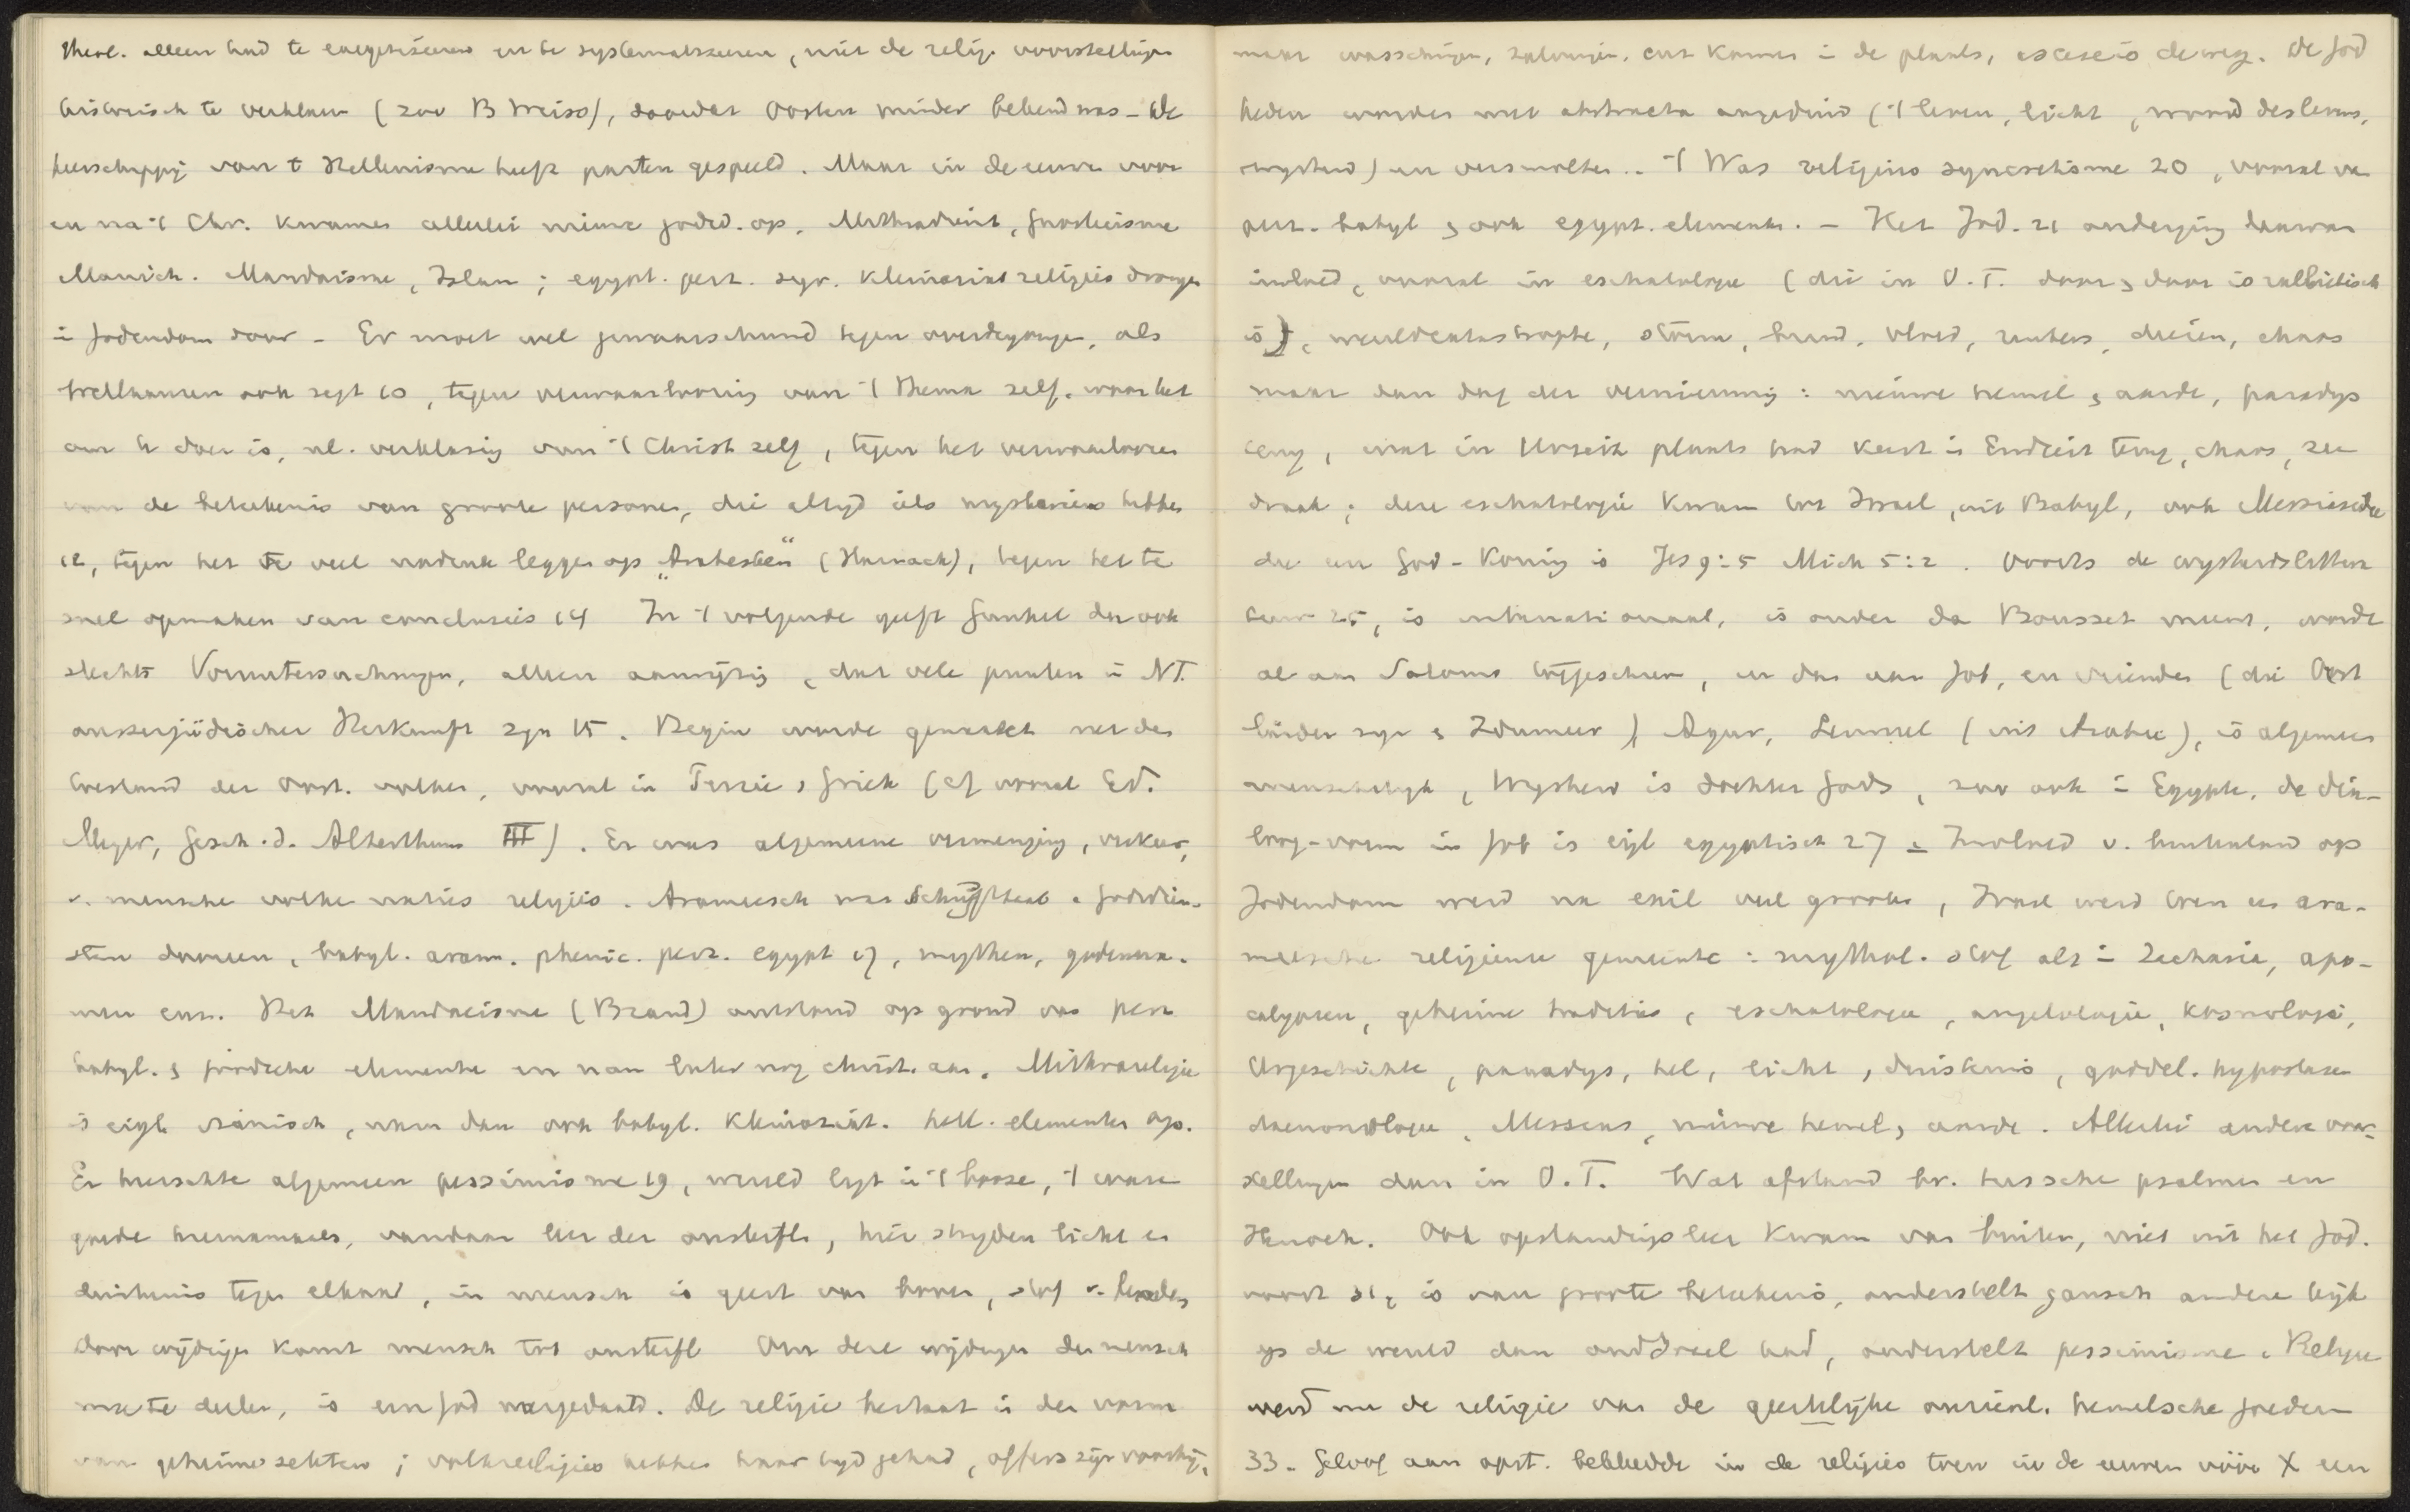 theol. alleen had te exegetiseeren en te systematiseeren, niet de relig. voorstellingen
historisch te verklaren (zoo B Weiss), doordat Oosten minder bekend was - de
heerschappij van t Hellenisme heeft parten gespeeld. Maar in de eeuwen voor
en na 't Chr. kwamen allerlei nieuwe godsd. op, Mithradienst, gnosticisme
Manich. Mandaisme, Islam; egypt. perz. syr. kleinaziat religies drongen
in Jodendom door - Er moet wel gewaarschuwd tegen overdrijvingen, als
Wellhausen ook zegt 10, tegen verwaarloozing van 't thema zelf, waar het
om te doen is, nl. verklaring van 't Christ zelf, tegen het verwaarloozen
van de beteekenis van groote personen, die altijd iets mysterieus hebben
12, tegen het te veel nadruk leggen op "Arabesken" (Harnack), tegen het te
snel opmaken van conclusies 14 In 't volgende geeft Gunkel dan ook
slechts Voruntersuchungen, alleen aanwijzing, dat vele punten in NT.
ausserjüdischer Herkunft zijn 15. Begin worde gemaakt met den
toestand der Oost. volken, vooral in Perzie, Griek (cf vooral Ed.
Meyer, Gesch. d. Alterthums III). Er was algemeene vermenging, verkeer,
v. menschen volken naties religies. Arameesch was schrijftaal. godsdien-
sten dooreen, babyl. aram. phenic. perz. egypt 17, mythen, godenna-
men enz. Het Mandaeisme (Brand) ontstond op grond van perz
babyl. & joodsche elementen en nam later nog christ. aan. Mithrareligie
is eigl. iranisch, nam dan ook babyl. kleinaziat. hell. elementen op.
Er heerschte algemeen pessimisme 19, wereld ligt in 't booze, 't ware
goede hiernamaals, vandaar leer der onsterfl., hier strijden licht en
duisternis tegen elkaar, in mensch is geest van boven, stof v. beneden,
door wijdingen komt mensch tot onsterfl Om deze wijdingen den mensch
mee te deelen, is een God neergedaald. De religie bestaat in den vorm
van geheime sekten; volksreligies hebben haar tijd gehad, offers zijn voorbij,
maar wasschingen, zalvingen, enz kwamen in de plaats, ascese is de weg. De god
heden worden met abstracta aangeduid ('t leven, licht, woord des levens,
wijsheid) en versmolten.. 't Was religieus syncretisme 20, vooral van
perz. babyl & ook egypt. elementen. - Het Jod. 21 onderging daarvan
invloed, vooral in eschatologie (die in O.T. daar & daar is
is), wereldcatastrophe, storm, brand, vloed, dieren, chaos
maar dan dag der vernieuwing: nieuwe hemel & aarde, paradijs
terug, wat in Urzeit plaats had keert in Endzeit terug, chaos, zee
draak; deze eschatologie kwam tot Israel uit Babyl, ook Messiasidee
die een God-Koning is Jes 9:5 Mich 5:2. Voorts de wijsheidslittera
tuur 25, is internationaal, is ouder dan Bousset meent, wordt
al aan Salomo toegeschreven, en dan aan Job, en vrienden (die Oost
länder zijn & Idumeer) Agur, Lemuel (uit Arabie), is algemeen
menschelijk, Wijsheid is dochter Gods, zoo ook in Egypte. de dia-
loog-vorm in Job is eigl egyptisch 27 - Invloed v. buitenland op
Jodendom werd na exil veel grooter, Israel werd toen een ara-
meesche religieuse gemeente: mythol. stof als in Zacharia, apo-
calypsen, geheime tradities, eschatologie, angelologie, kosmologie,
Urgeschichte, paradijs, hel, licht, duisternis, goddel. hypostasen
daemonologie, Messias, nieuwe hemel, aarde. Allerlei andere voor-
stellingen dan in O.T. Wat afstand tusschen psalmen en
Henoch. Ook opstandingsleer kwam van buiten, niet uit het Jod.
voort 31, is van groote beteekenis, onderstelt gansch andere kijk
op de wereld dan oud Israel had, onderstelt pessimisme. Religie
werd nu de religie van de geestelijke onzienl. hemelsche goederen
33. Geloof aan opst. bekleedde in de religies toen in de eeuwen vóór X een